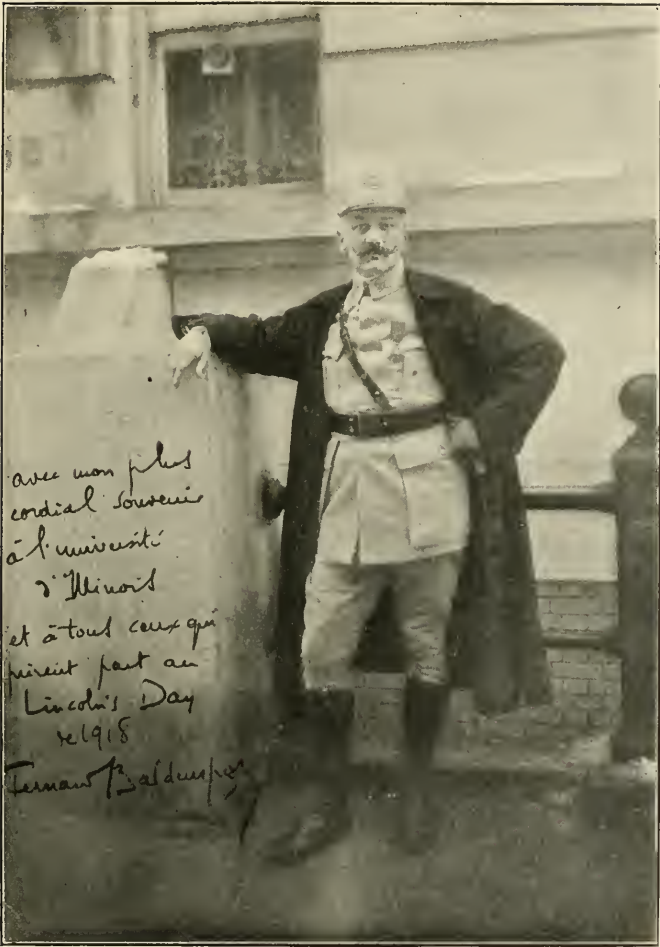 avec mon plus
cordial souvenir
à l'université
d'Illinois
et à tous ceux qui
prirent part au
Lincoln's Day
de 1918
Fernand Baldensperger